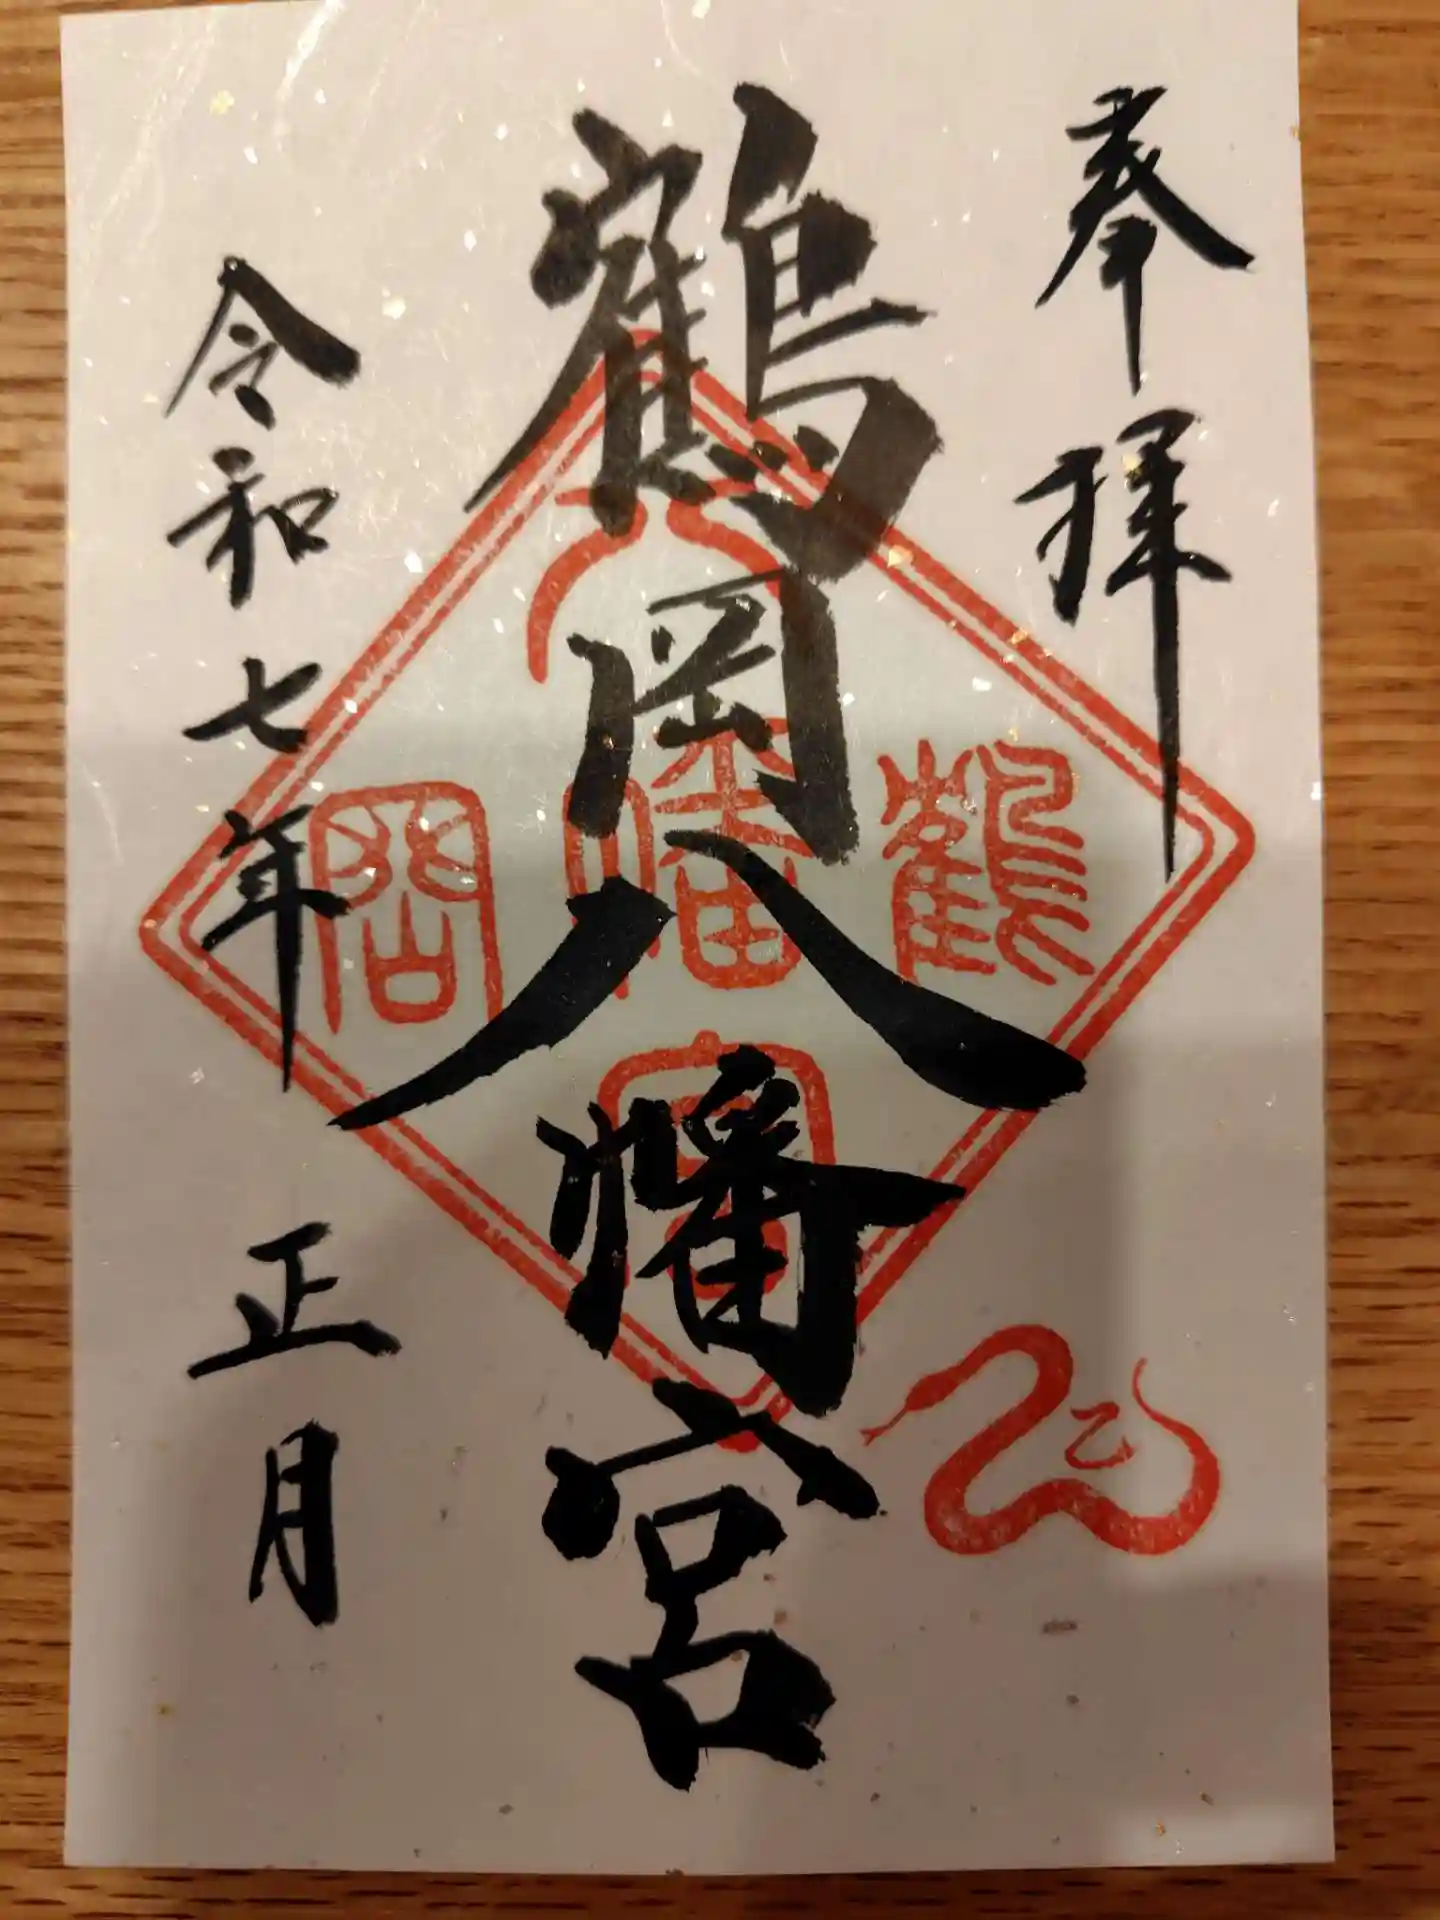 奉拝
鶴岡八幡宮
令和七年 正月
八
鶴幡岡
宮
巳